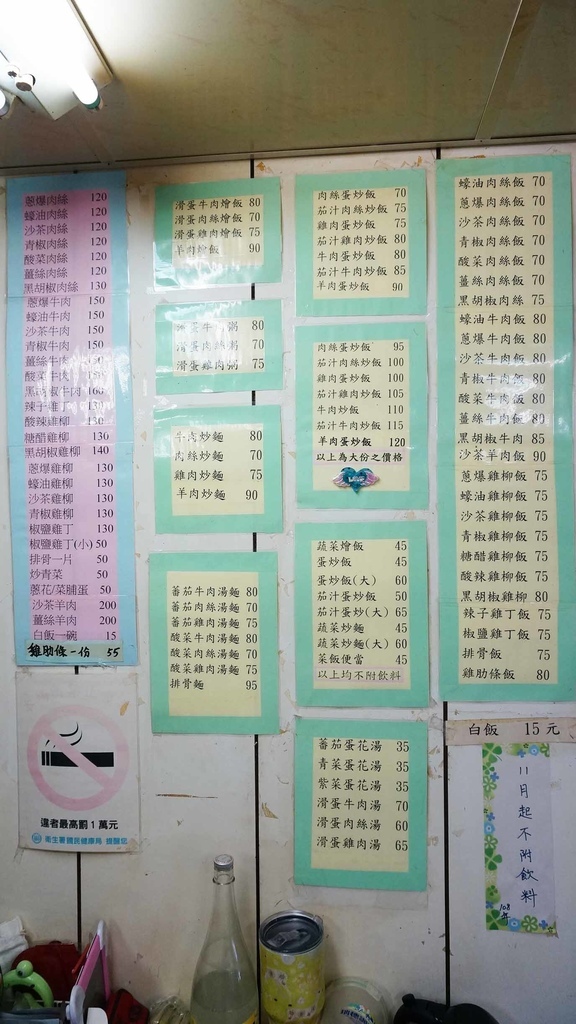 蔥爆肉絲 120
蠔油肉絲 120
沙茶肉絲 120
青椒肉絲 120
酸菜肉絲 120
薑絲肉絲 120
黑胡椒肉絲 130
蔥爆牛肉 150
蠔油牛肉 150
沙茶牛肉 150
青椒牛肉 150
薑絲牛肉 150
酸菜牛肉 150
黑胡椒牛肉 160
辣子雞丁 130
酸辣雞柳 130
糖醋雞柳 130
黑胡椒雞柳 140
蔥爆雞柳 130
蠔油雞柳 130
沙茶雞柳 130
青椒雞柳 130
椒鹽雞丁 130
椒鹽雞丁(小) 50
排骨一片 50
炒青菜 50
蔥花/菜脯蛋 50
沙茶羊肉 200
薑絲羊肉 200
白飯一碗 15
雞肋條一份 55
違者最高罰1萬元
衛生署國民健康局 提醒您
滑蛋牛肉燴飯 80
滑蛋肉絲燴飯 70
滑蛋雞肉燴飯 75
羊肉燴飯 90
滑蛋牛肉粥 80
滑蛋肉絲粥 70
滑蛋雞肉粥 75
牛肉炒麵 80
肉絲炒麵 70
雞肉炒麵 75
羊肉炒麵 90
蕃茄牛肉湯麵 80
蕃茄肉絲湯麵 70
蕃茄雞肉湯麵 75
酸菜牛肉湯麵 80
酸菜肉絲湯麵 70
酸菜雞肉湯麵 75
排骨麵 95
肉絲蛋炒飯 70
茄汁肉絲炒飯 75
雞肉蛋炒飯 75
茄汁雞肉炒飯 80
牛肉蛋炒飯 80
茄汁牛肉炒飯 85
羊肉蛋炒飯 90
肉絲蛋炒飯 95
茄汁肉絲炒飯 100
雞肉蛋炒飯 100
茄汁雞肉炒飯 105
牛肉蛋炒飯 110
茄汁牛肉炒飯 115
羊肉蛋炒飯 120
以上為大份之價格
蔬菜燴飯 45
蛋炒飯 45
蛋炒飯(大) 60
茄汁蛋炒飯 50
茄汁蛋炒飯(大) 65
蔬菜炒麵 45
蔬菜炒麵(大) 60
菜飯便當 45
以上均不附飲料
蕃茄蛋花湯 35
青菜蛋花湯 35
紫菜蛋花湯 35
滑蛋牛肉湯 70
滑蛋肉絲湯 60
滑蛋雞肉湯 65
蠔油肉絲飯 70
蔥爆肉絲飯 70
沙茶肉絲飯 70
青椒肉絲飯 70
酸菜肉絲飯 70
薑絲肉絲飯 70
黑胡椒肉絲 75
蠔油牛肉飯 80
蔥爆牛肉飯 80
沙茶牛肉飯 80
青椒牛肉飯 80
酸菜牛肉飯 80
薑絲牛肉飯 80
黑胡椒牛肉 85
沙茶羊肉飯 90
蔥爆雞柳飯 75
蠔油雞柳飯 75
沙茶雞柳飯 75
青椒雞柳飯 75
糖醋雞柳飯 75
酸辣雞柳飯 75
黑胡椒雞柳 80
辣子雞丁飯 75
椒鹽雞丁飯 75
排骨飯 75
雞肋條飯 80
白飯 15元
11月起不附飲料
108年